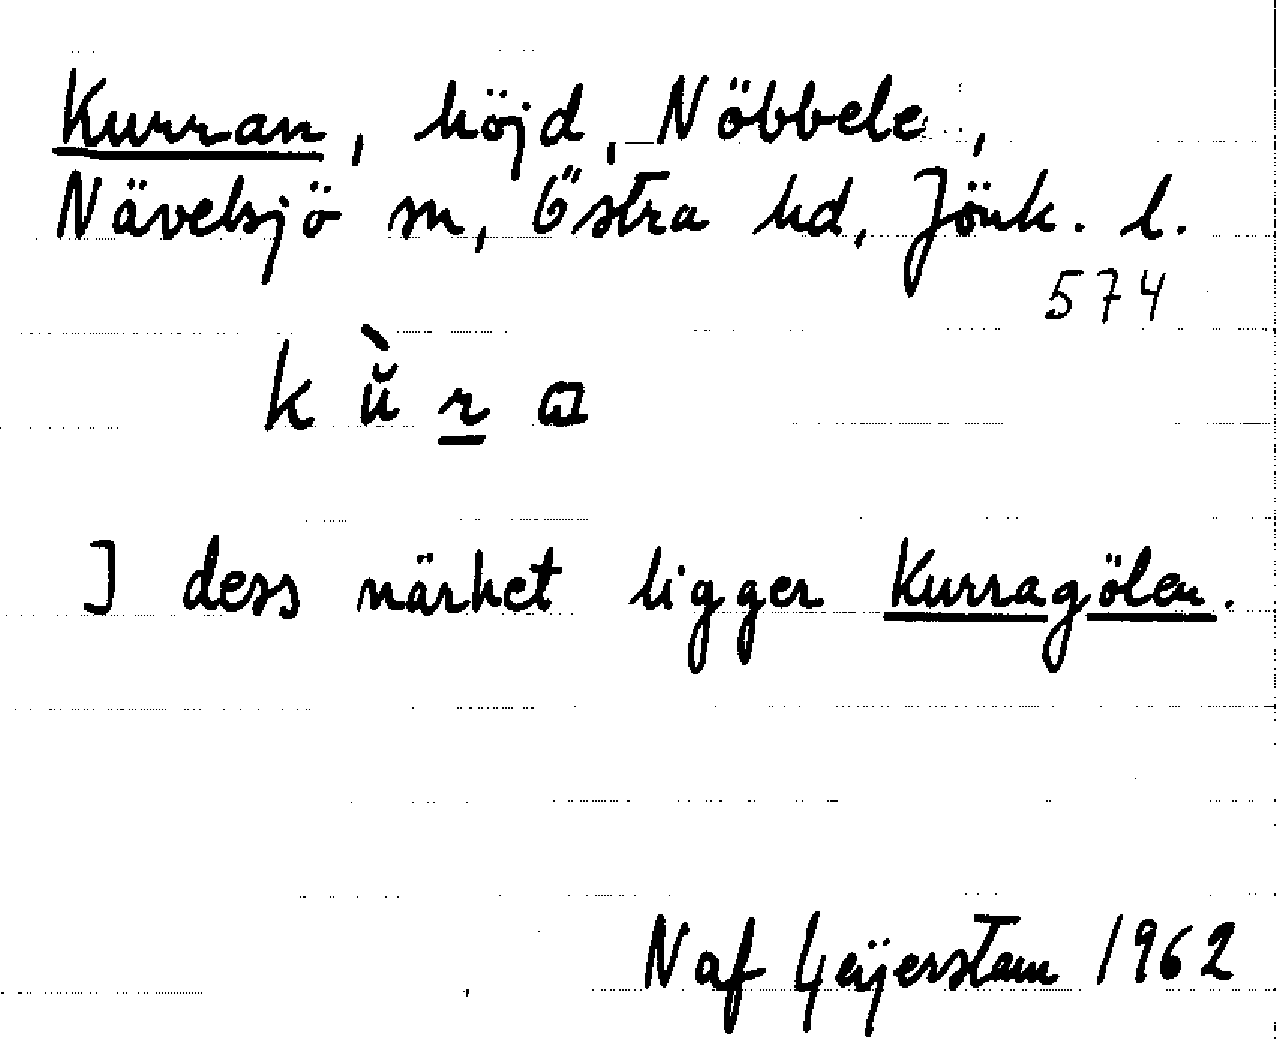 Kurran, höjd, Nöbbele,
Nävelsjö sn, Östra hd, Jönk. l.
574
k ù̆ r̲ a
I dess närhet ligger Kurragölen.
N af Geijerstam 1962